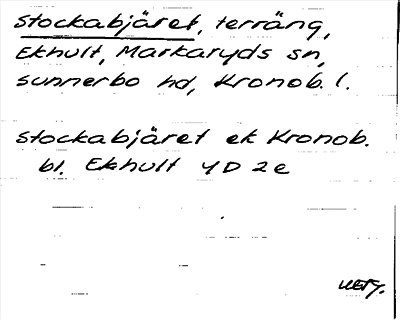 Stockabjäret, terräng,
Ekhult, Markaryds sn,
Sunnerbo hd, Kronob. l.
Stockabjäret ek Kronob.
bl. Ekhult 4D 2e